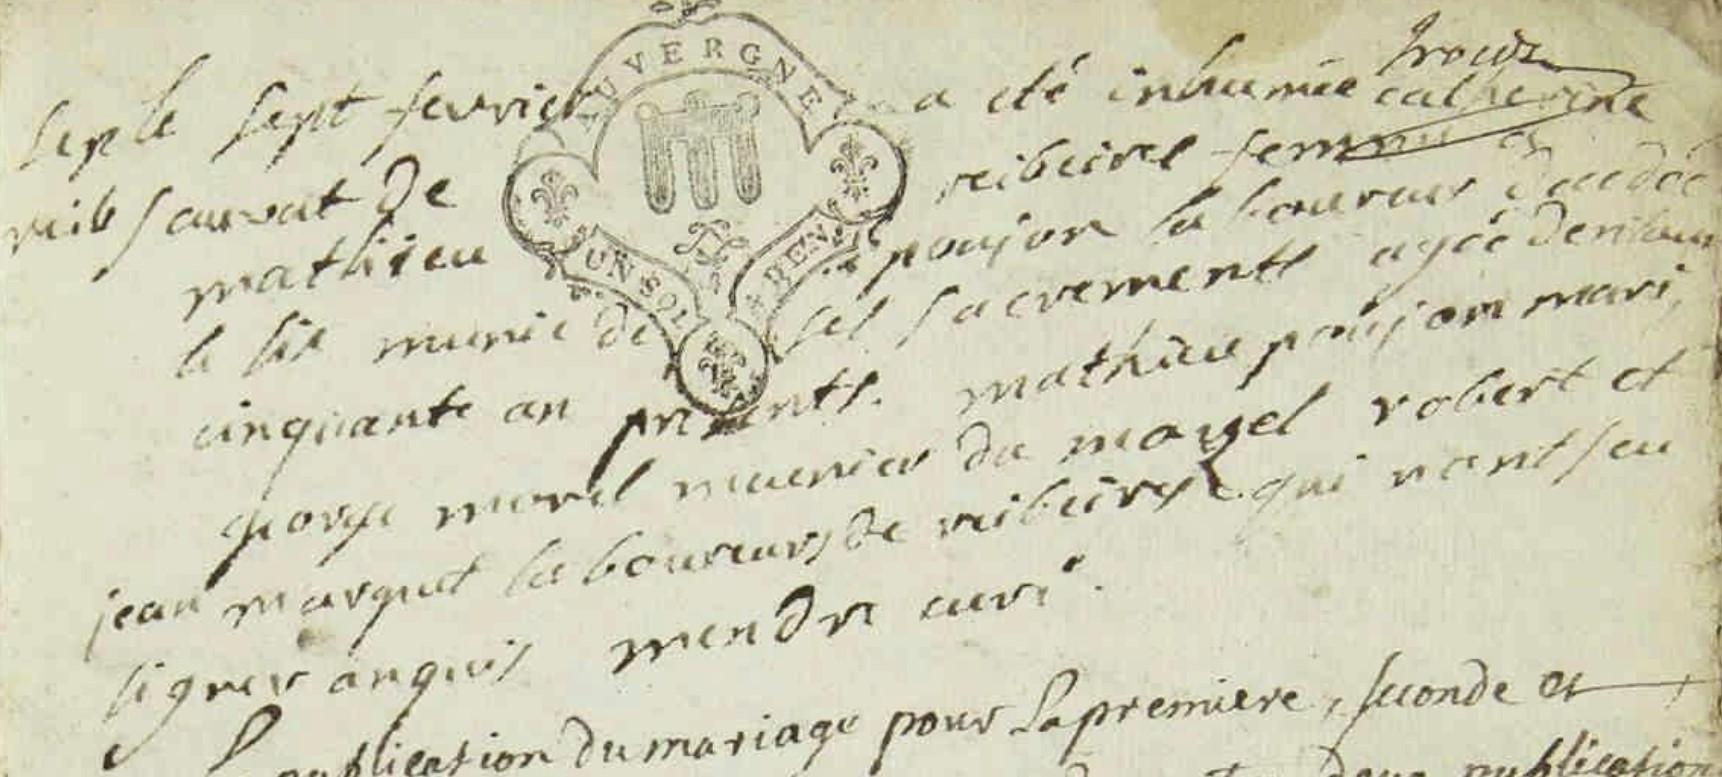 le sept fevrier a été inhumée catherine
sauvat de reibeirel femme a
mathieu poujon laboureur decedée
le six munie de sel sacrements agée denviron
cinquante an presents. mathieu poujon mari,
george morel meunier du mayel robert et
jean marquet laboureurs de reibeirel qui nont seu
signer enquis mendre curé.
publication du mariage pour La premiere, seconde et
publication
AUVERGNE
UN SOL
REN